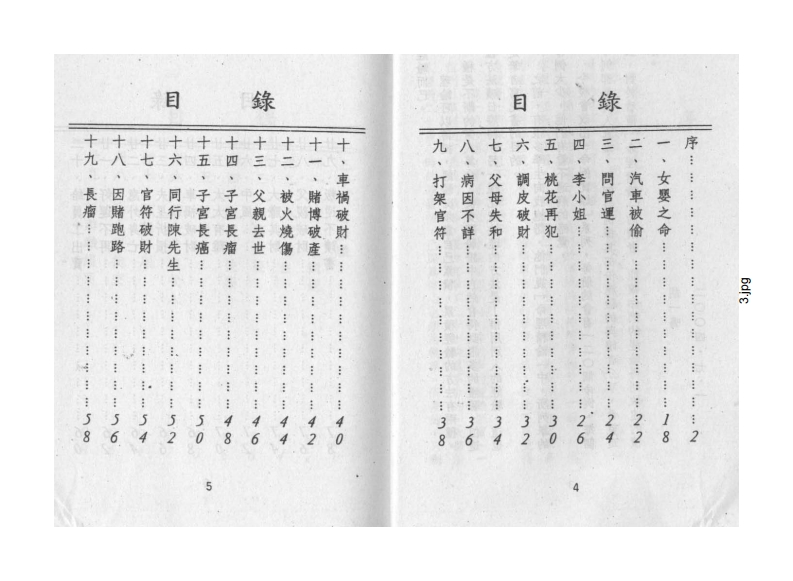 目錄
序………………………2
一、女嬰之命………………18
二、汽車被偷………………22
三、問官運………………24
四、李小姐………………26
五、桃花再犯………………30
六、調皮破財………………32
七、父母失和………………34
八、病因不詳………………36
九、打架官符………………38
4
目錄
十、車禍破財………………40
十一、賭博破產………………42
十二、被火燒傷………………44
十三、父親去世………………46
十四、子宮長瘤………………48
十五、子宮長癌………………50
十六、同行陳先生………………52
十七、官符破財………………54
十八、因賭跑路………………56
十九、長瘤………………58
5
3.jpg